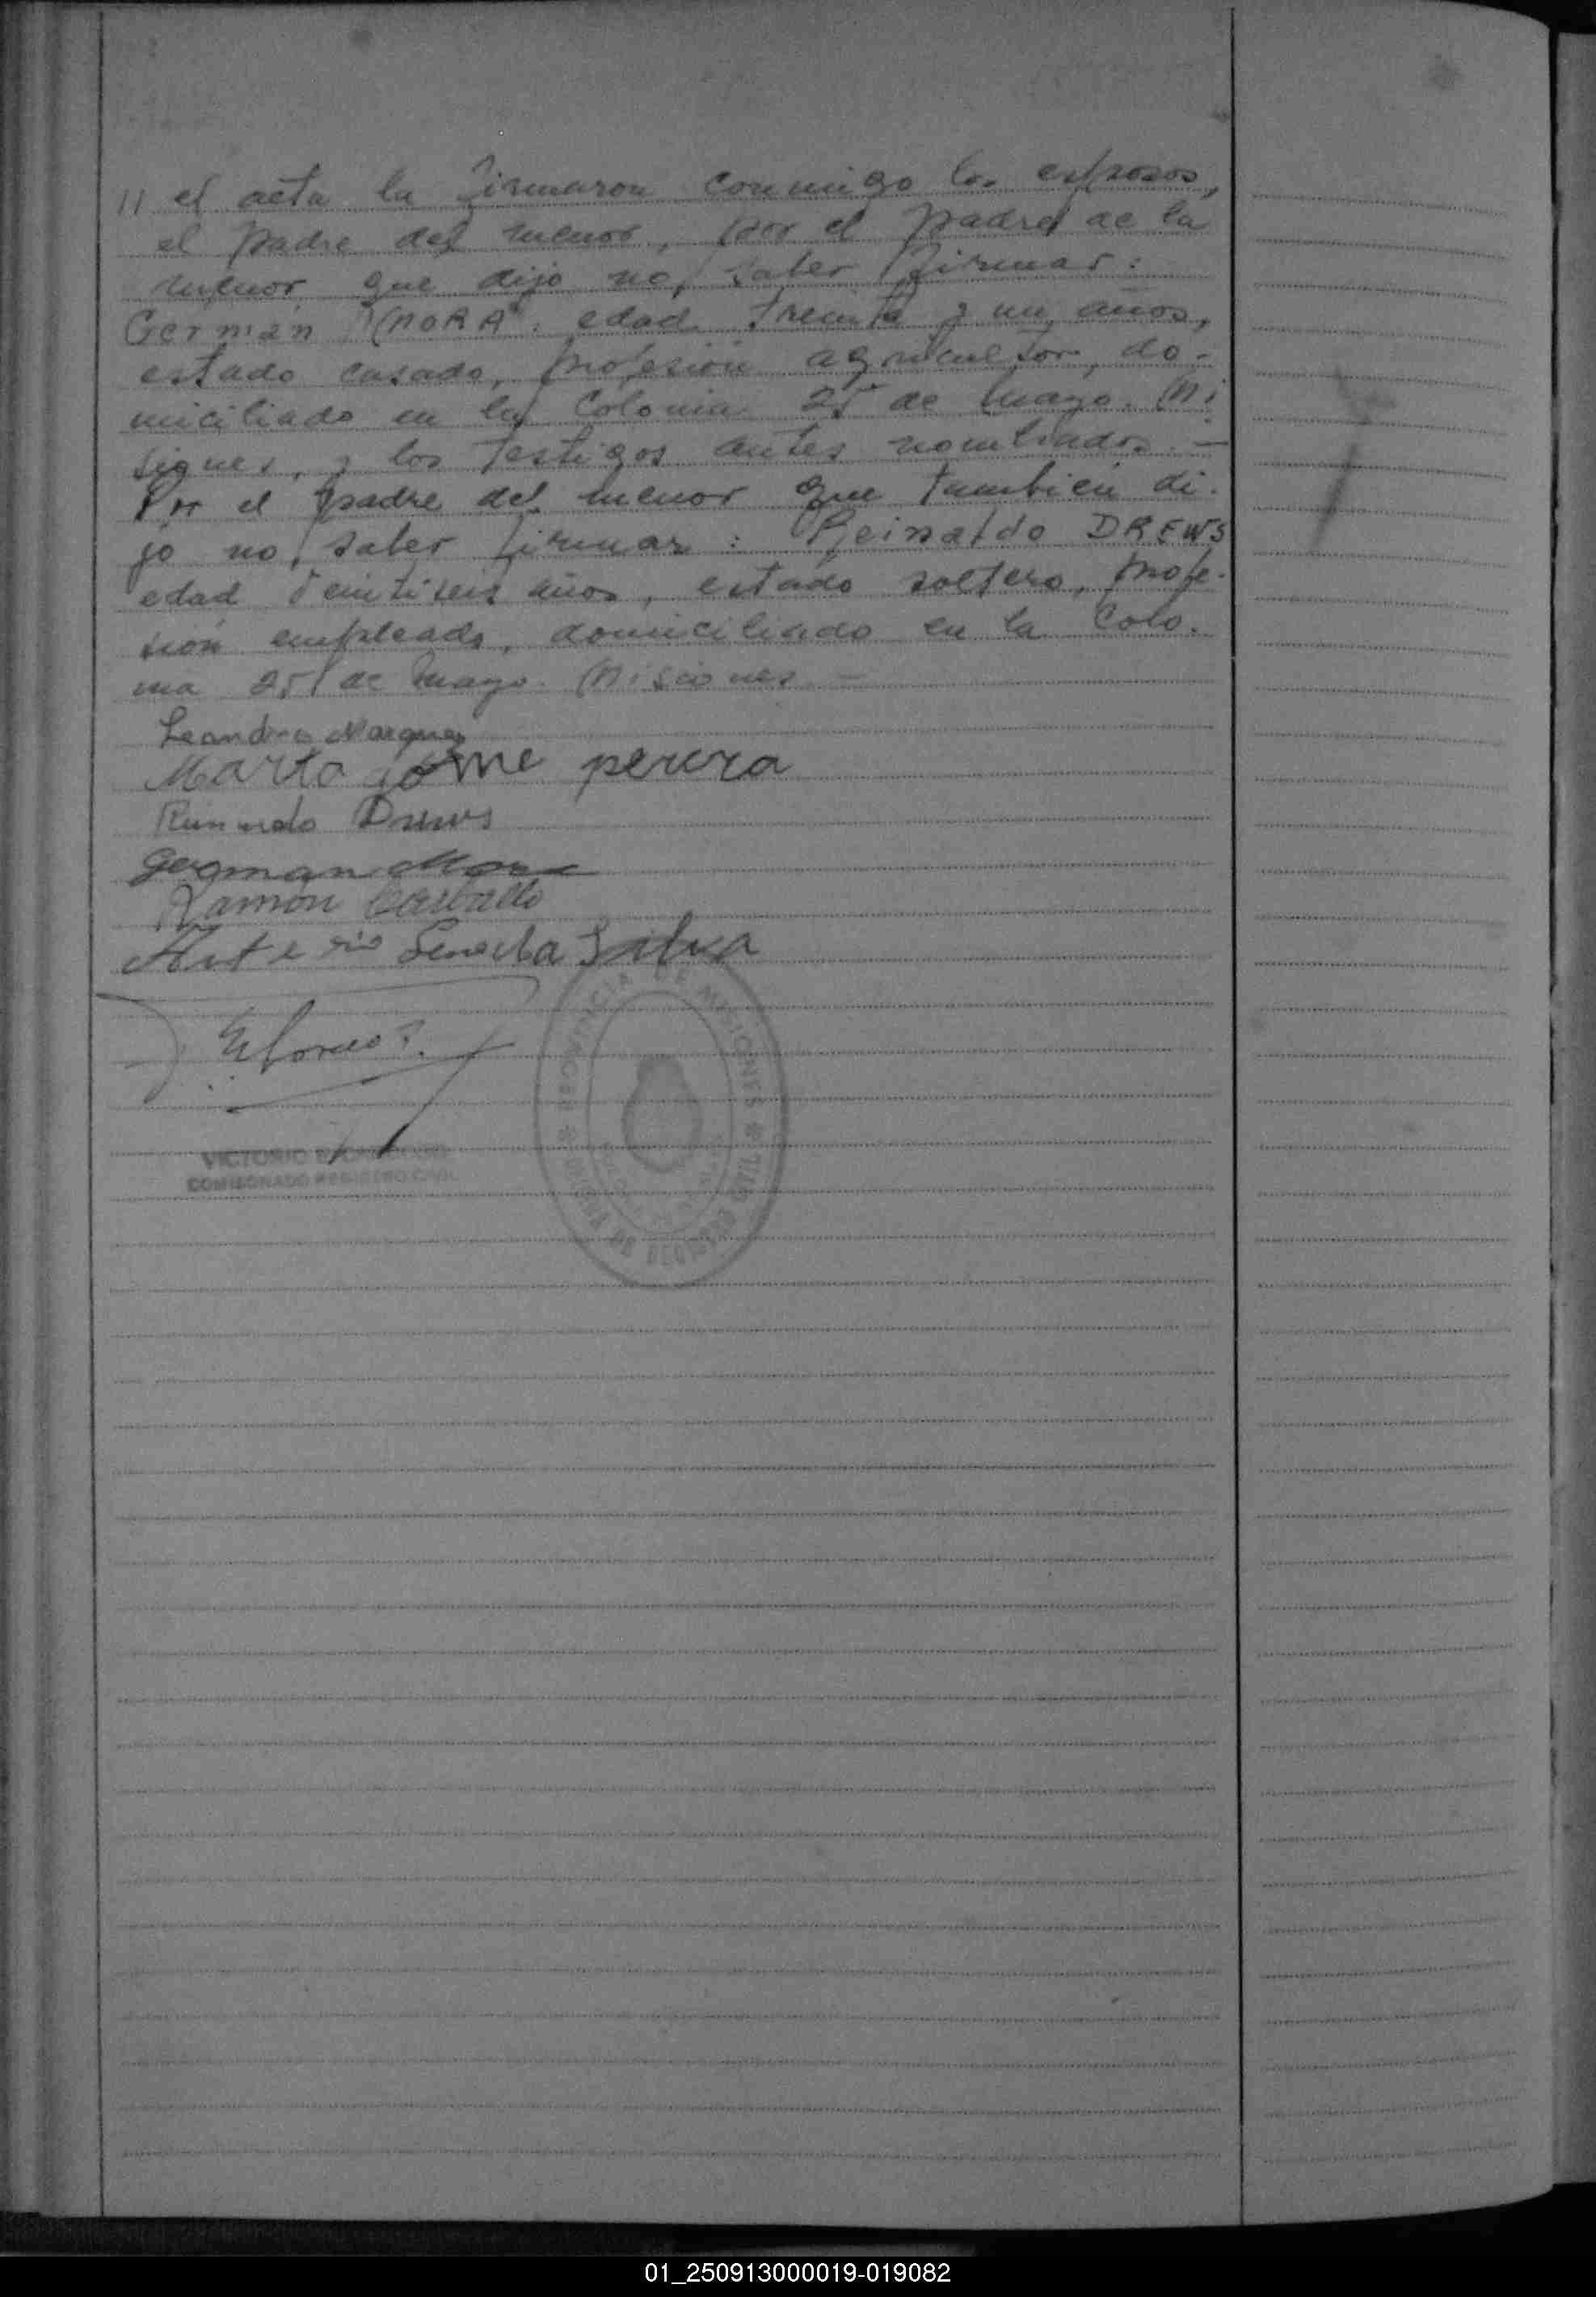 // el acta la firmaron conmigo los esposos,
el padre del menor, por el padre de la
menor que dijo no saber firmar:
Germán MORA, edad treinta y un años,
estado casado, profesión agricultor, do-
miciliado en la Colonia 25 de Mayo. Mi
siones, y los testigos antes nombrados. —
Por el padre del menor que también di-
jo no saber firmar: Reinaldo DREWS
edad veintiseis años, estado soltero, profe-
sión empleado, domiciliado en la Colo-
nia 25 de Mayo. Misiones —
Leandro Marquez
Marta gome perera
Reinaldo Drews
German Mora
Ramón Carballo
Silva
PROVINCIA DE MISIONES
OFICINA DE REGISTRO CIVIL
VICTORIO
COMISIONADO REGISTRO CIVIL
01_250913000019-019082